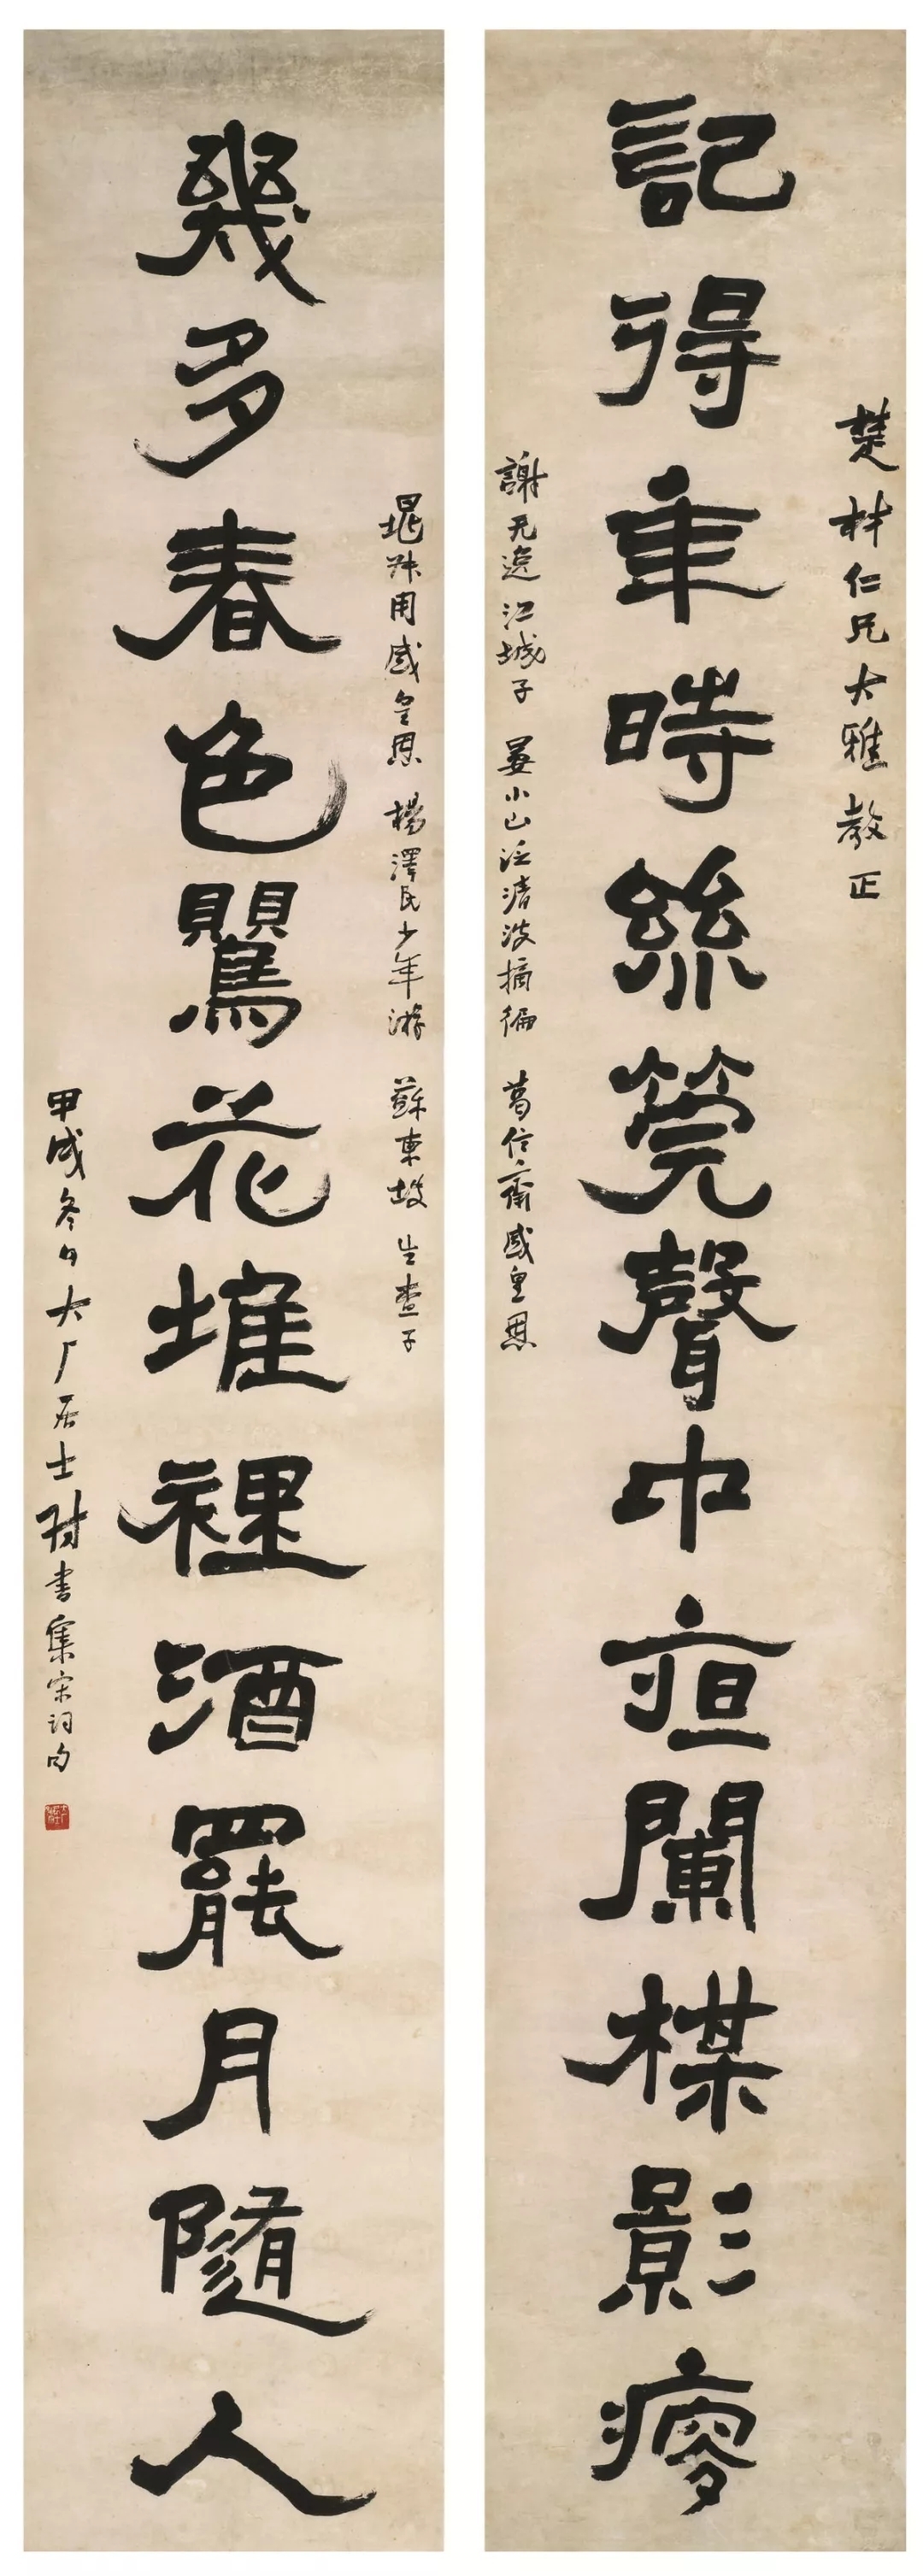 楚材仁兄大雅教正
記得年時絲筦聲中亱闌楳影
謝无逸 江城子 晏小山泛清波摘徧 葛信齋感皇恩
用感皇恩 楊澤民少年游 蘇東坡 生查子
幾多春色鶯花堆裡酒罷月隨人
甲戌冬大厂居士書集宋詞句